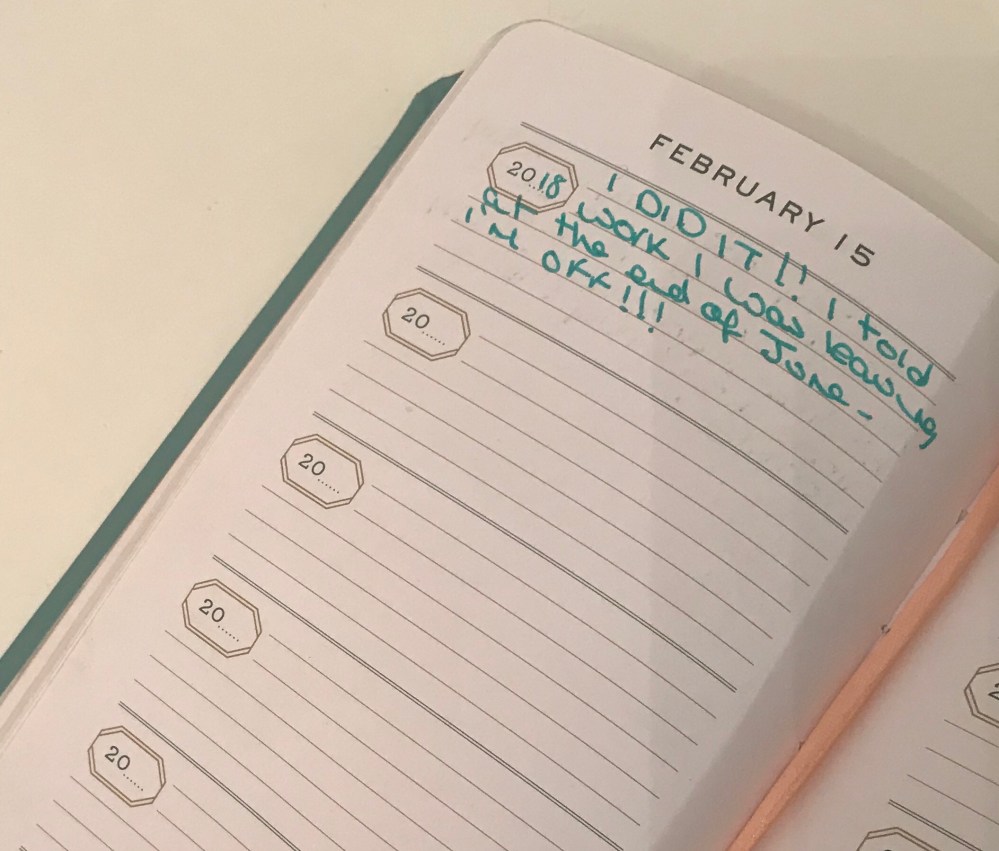 FEBRUARY 15
2018 I DID IT!! I told
work I was leaving
at the end of June-
I'M OFF!!!
20......
20......
20......
20......